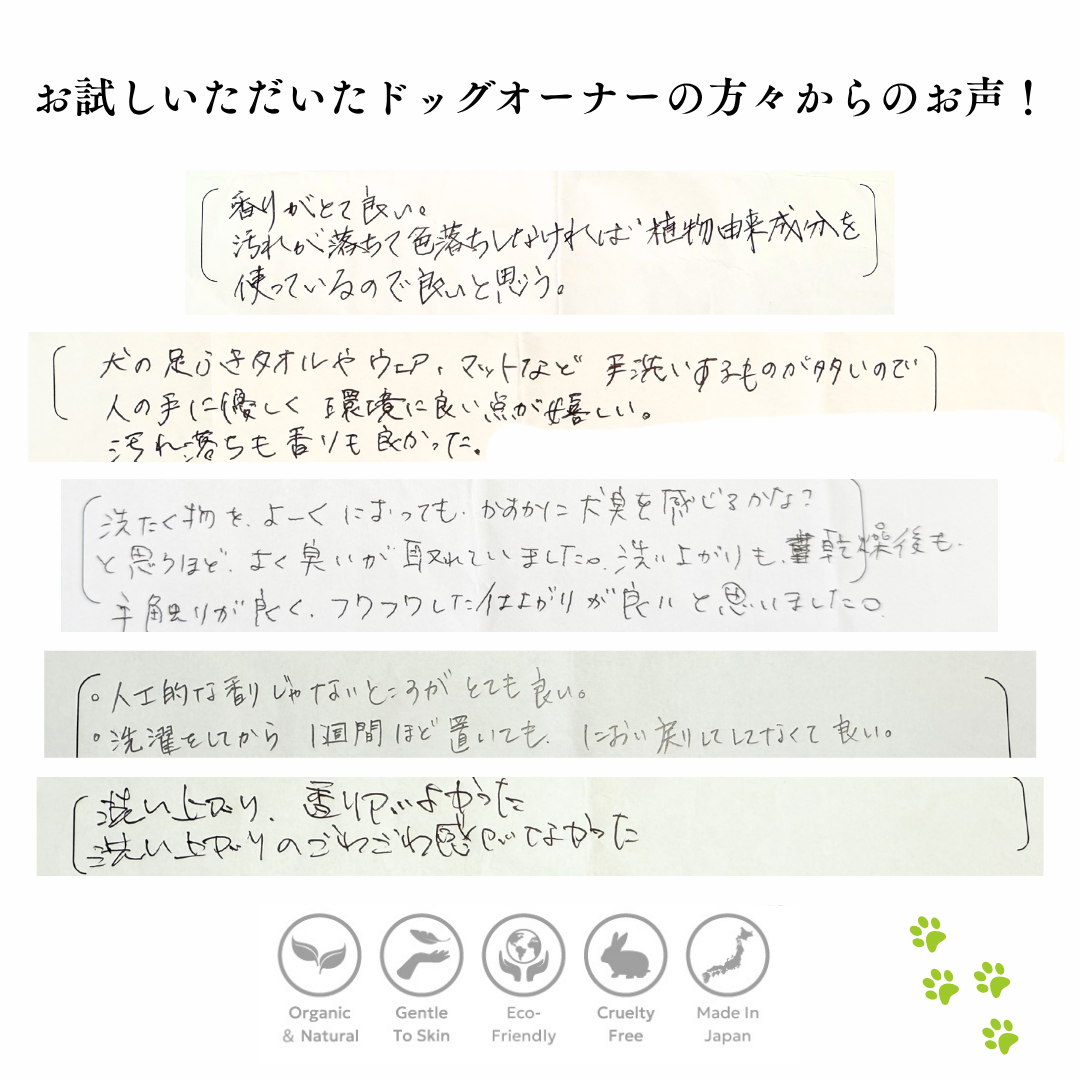 お試しいただいたドッグオーナーの方々からのお声！
香りがとて良い。
汚れが落ちて色落ちしなければ植物由来成分を
使っているので良いと思う。
犬の足ふきタオルやウェア、マットなど 手洗いするものが多いので
人の手に優しく 環境に良い点が嬉しい。
汚れ落ちも香りも良かった。
洗たく物を、よーくにおっても、かすかに犬臭を感じるかな？
と思うほど、よく臭いが取れていました。洗い上がりも、乾燥後も、
手触りが良く、フワフワした仕上がりが良いと思いました。
○人工的な香りじゃないところがとても良い。
○洗濯をしてから 1週間ほど置いても、におい戻りしてしなくて良い。
洗い上がり、香りがよかった
洗い上がりのごわごわ感がなかった
Organic
& Natural
Gentle
To Skin
Eco-
Friendly
Cruelty
Free
Made In
Japan